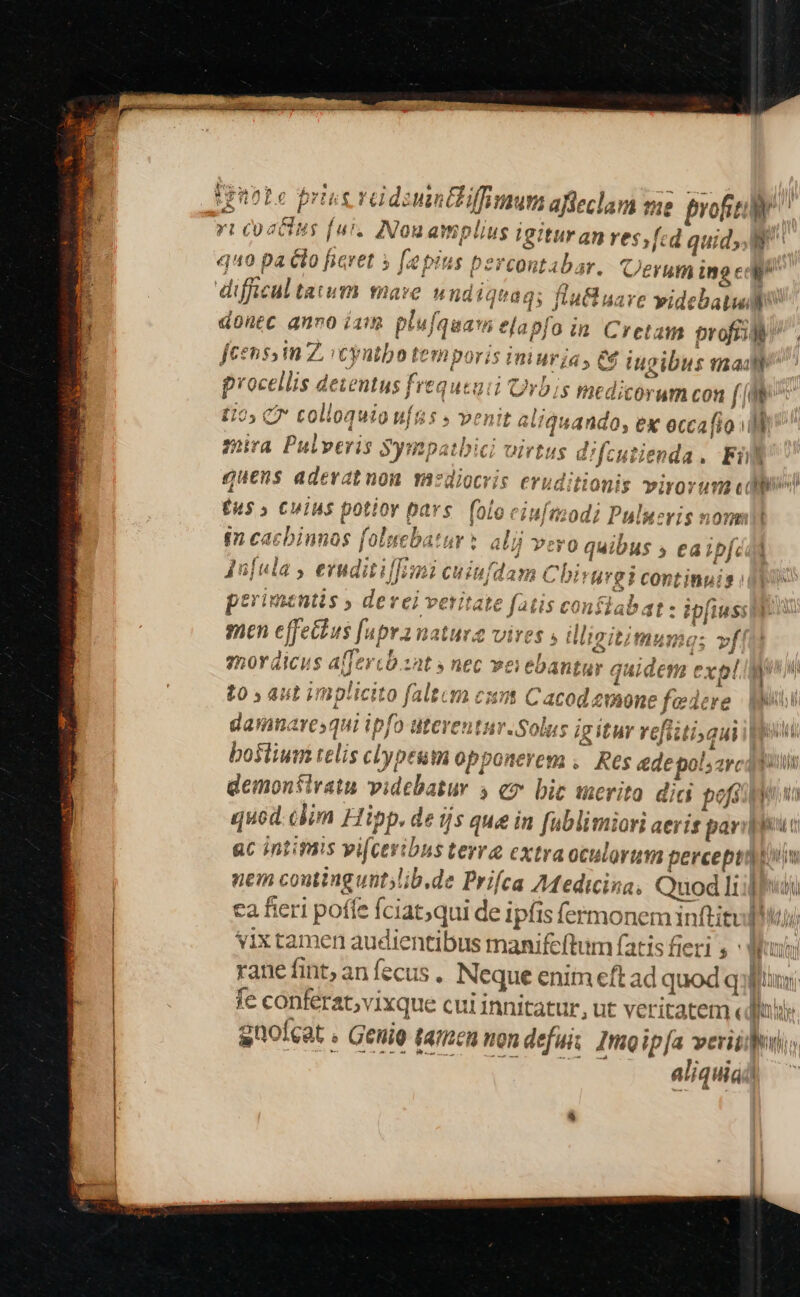 ignote prius rei deuinctissimum asseclam me profit
ri coactus fui. Non amplius igitur an res, sed quid,
quo pacto fieret, sæpius percontabar. Verum ing
difficultatum mare undiquaq; fluctuare videbatu
donec anno iam plusquam elapso in Cretam profi
scens, in Zacyntho temporis iniuria, & iugibus ma
procellis detentus frequenti Vrbis medicorum con
tio, & colloquio usus, venit aliquando, ex occasio
mira Pulveris Sympathici virtus discutienda.
quens aderat non mediocris eruditionis virorum
tus, cuius potior pars solo eiusmodi Pulueris nom
in cachinnos soluebatur: alij vero quibus, ea ips
Insula, eruditissimi cuiusdam Chirurgi continuis
perimentis, de rei veritate satis constabat: ipsius
men effectus supra naturæ vires, illigitimumq;
mordicus asserebant, nec verebantur quidem expl
to, aut implicito saltem cum Cacodæmone fœdere
damnare, qui ipso uterentur. Solus igitur restiti, qui
hostium telis clypeum opponerem. Res ædepol, ar
demonstratu videbatur, & hic merito dici pos
quod olim Hipp. de ijs quæ in sublimiori aeris par
ac intimis visceribus terræ extra oculorum percepti
nem contingunt, lib. de Prisca Medicina. Quod li
ea fieri posse sciat, qui de ipsis sermonem institu
vix tamen audientibus manifestum satis fieri,
rane sint, an secus. Neque enim est ad quod q
se conferat, vixque cui innitatur, ut veritatem
gnoscat. Genio tamen non defui; Imo ipsa veri
aliquia